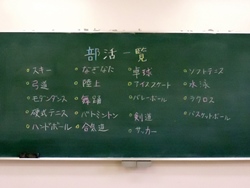 部活一覧
○スキー
○弓道
○モダンダンス
○硬式テニス
○ハンドボール
○なぎなた
○陸上
○舞踊
○バドミントン
○合気道
○卓球
○アイススケート
○バレーボール
○剣道
○サッカー
○ソフトテニス
○水泳
○ラクロス
○バスケットボール